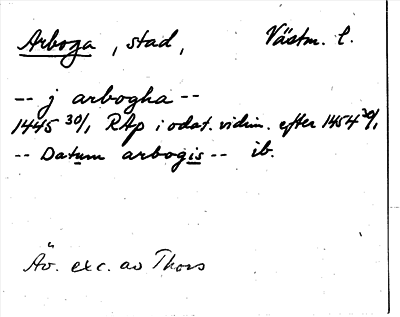 Arboga, stad, Västm. l.
-- j arbogha --
1445 30/1 RAp i odat. vidim. efter 1454 20/1
-- Datum arbogis -- ib.
Äv. exc. av Thors